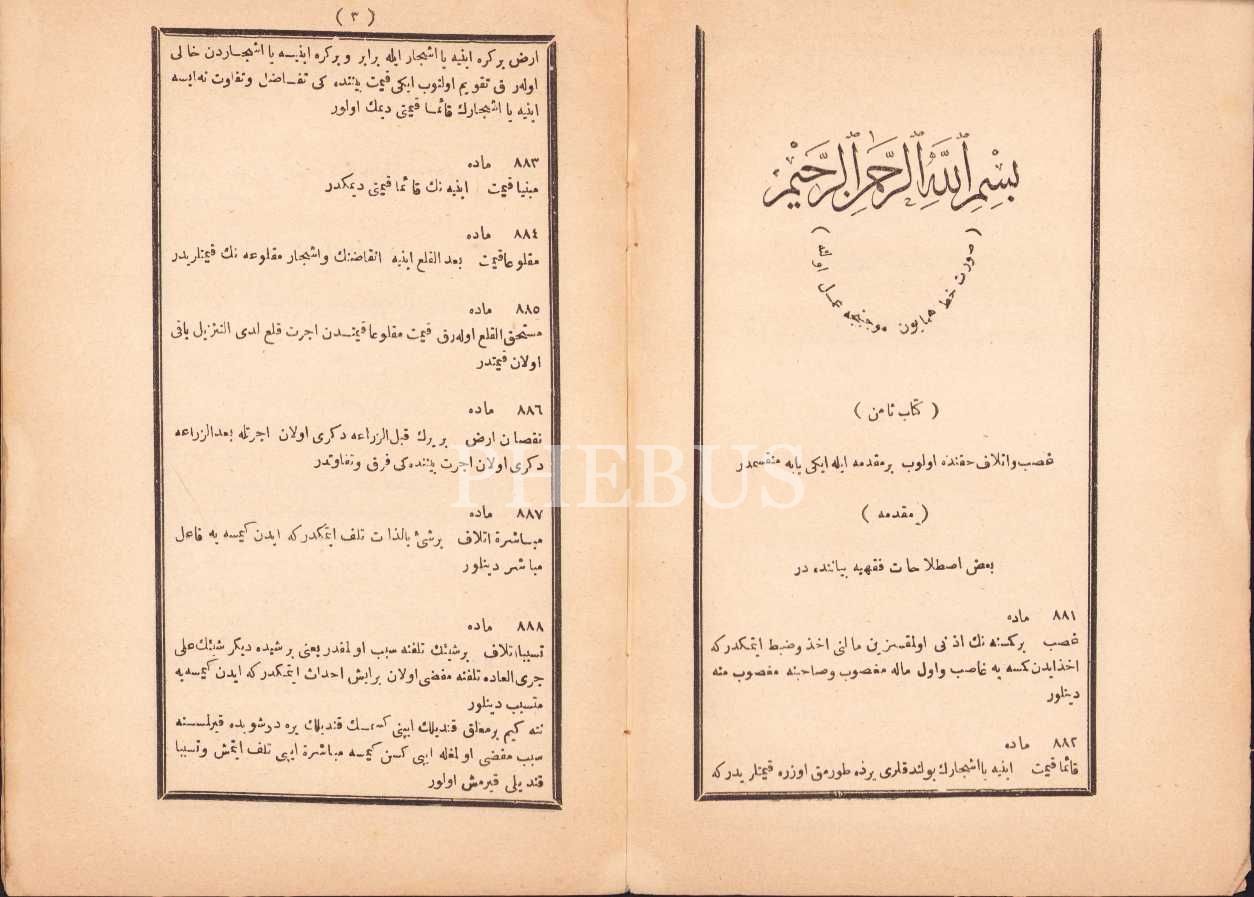 بِسْمِ اللّٰهِ الرَّحْمٰنِ الرَّحِيْمِ
( صورت خط همايون موجبنجه عمل اولنه )
( كتاب ثامن )
غصب واتلاف حقنده اولوب برمقدمه ايله ايكى بابه منقسمدر
( مقدمه )
بعض اصطلاحات فقهيه بياننده در
٨٨١ ماده
غصب بركسنه نك اذنى اولمقسزين مالنى اخذ وضبط ايتمكدركه
اخذايدن كسه يه غاصب واول ماله مغصوب وصاحبنه مغصوب منه
دينلور
٨٨٢ ماده
قائماقيمت ابنيه يااشجارك بولندقلرى يرده طورمق اوزره قيمتلريدركه
( ٣ )
ارض بركره ابنيه يا اشجار ايله برابر وبركره ابنيه يا اشجاردن خالى
اوله رق تقويم اولنوب ايكى قيمت بيننده كى تفاضل وتفاوت نه ايسه
ابنيه يا اشجارك قائما قيمتى ديمك اولور
٨٨٣ ماده
مبنياقيمت ابنيه نك قائما قيمتى ديمكدر
٨٨٤ ماده
مقلوعاقيمت بعدالقلع ابنيه انقاضنك واشجار مقلوعه نك قيمتلريدر
٨٨٥ ماده
مستحق القلع اوله رق قيمت مقلوعاقيمتدن اجرت قلع لدى التنزيل باقى
اولان قيمتدر
٨٨٦ ماده
نقصان ارض بر يرك قبل الزراعه دكرى اولان اجرتله بعدالزراعه
دكرى اولان اجرت بيننده كى فرق وتفاوتدر
٨٨٧ ماده
مباشرة اتلاف برشئ بالذات تلف ايتمكدركه ايدن كيمسه يه فاعل
مباشر دينلور
٨٨٨ ماده
تسببااتلاف برشيئك تلفنه سبب اولمقدر يعنى برشيده ديكر شيئك على
جرى العاده تلفنه مفضى اولان برايش احداث ايتمكدركه ايدن كيمسه يه
متسبب دينلور
نته كيم برمعلق قنديلك ايپنى كسمك قنديلك يره دوشوبده قيرلمسنه
سبب مفضى اولمغله ايپى كسن كيمسه مباشرة ايپى تلف ايتمش وتسببا
قنديلى قيرمش اولور
PHEBUS